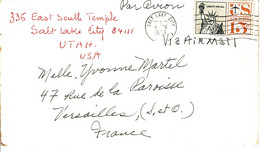 Par Avion
335 East South Temple
Salt Lake City 84111
UTAH.
USA
Via Air Mail
Melle. Yvonne Martel
47 Rue de la Paroisse
Versailles, (S. et O.)
France
SALT LAKE CITY
15¢